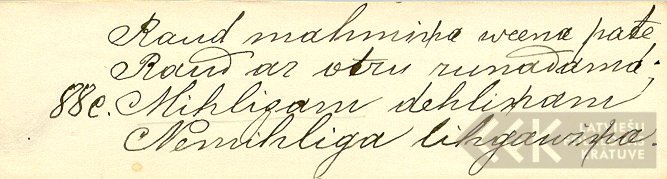 Raud mahmiņa weena pate
Raud ar otru runadama;
88c. Mihligam dehliņam
Nemihliga lihgawiņa.
LATVIEŠU
KRĀTUVE